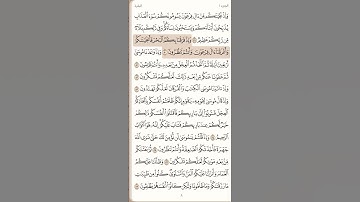 وَإِذْ نَجَّيْنَٰكُم مِّنْ ءَالِ فِرْعَوْنَ يَسُومُونَكُمْ سُوٓءَ ٱلْعَذَابِ
يُذَبِّحُونَ أَبْنَآءَكُمْ وَيَسْتَحْيُونَ نِسَآءَكُمْ وَفِى ذَٰلِكُم بَلَآءٌ
مِّن رَّبِّكُمْ عَظِيمٌ ٤٩ وَإِذْ فَرَقْنَا بِكُمُ ٱلْبَحْرَ فَأَنجَيْنَٰكُمْ
وَأَغْرَقْنَآ ءَالَ فِرْعَوْنَ وَأَنتُمْ تَنظُرُونَ ٥٠ وَإِذْ وَٰعَدْنَا مُوسَىٰٓ
أَرْبَعِينَ لَيْلَةً ثُمَّ ٱتَّخَذْتُمُ ٱلْعِجْلَ مِنۢ بَعْدِهِۦ وَأَنتُمْ ظَٰلِمُونَ ٥١
ثُمَّ عَفَوْنَا عَنكُم مِّنۢ بَعْدِ ذَٰلِكَ لَعَلَّكُمْ تَشْكُرُونَ ٥٢
وَإِذْ ءَاتَيْنَا مُوسَى ٱلْكِتَٰبَ وَٱلْفُرْقَانَ لَعَلَّكُمْ تَهْتَدُونَ ٥٣
وَإِذْ قَالَ مُوسَىٰ لِقَوْمِهِۦ يَٰقَوْمِ إِنَّكُمْ ظَلَمْتُمْ أَنفُسَكُم بِٱتِّخَاذِكُمُ
ٱلْعِجْلَ فَتُوبُوٓا۟ إِلَىٰ بَارِئِكُمْ فَٱقْتُلُوٓا۟ أَنفُسَكُمْ ذَٰلِكُمْ
خَيْرٌ لَّكُمْ عِندَ بَارِئِكُمْ فَتَابَ عَلَيْكُمْ إِنَّهُۥ هُوَ ٱلتَّوَّابُ
ٱلرَّحِيمُ ٥٤ وَإِذْ قُلْتُمْ يَٰمُوسَىٰ لَن نُّؤْمِنَ لَكَ حَتَّىٰ نَرَى ٱللَّهَ
جَهْرَةً فَأَخَذَتْكُمُ ٱلصَّٰعِقَةُ وَأَنتُمْ تَنظُرُونَ ٥٥ ثُمَّ بَعَثْنَٰكُم
مِّنۢ بَعْدِ مَوْتِكُمْ لَعَلَّكُمْ تَشْكُرُونَ ٥٦ وَظَلَّلْنَا عَلَيْكُمُ
ٱلْغَمَامَ وَأَنزَلْنَا عَلَيْكُمُ ٱلْمَنَّ وَٱلسَّلْوَىٰ كُلُوا۟ مِن طَيِّبَٰتِ
مَا رَزَقْنَٰكُمْ وَمَا ظَلَمُونَا وَلَٰكِن كَانُوٓا۟ أَنفُسَهُمْ يَظْلِمُونَ ٥٧